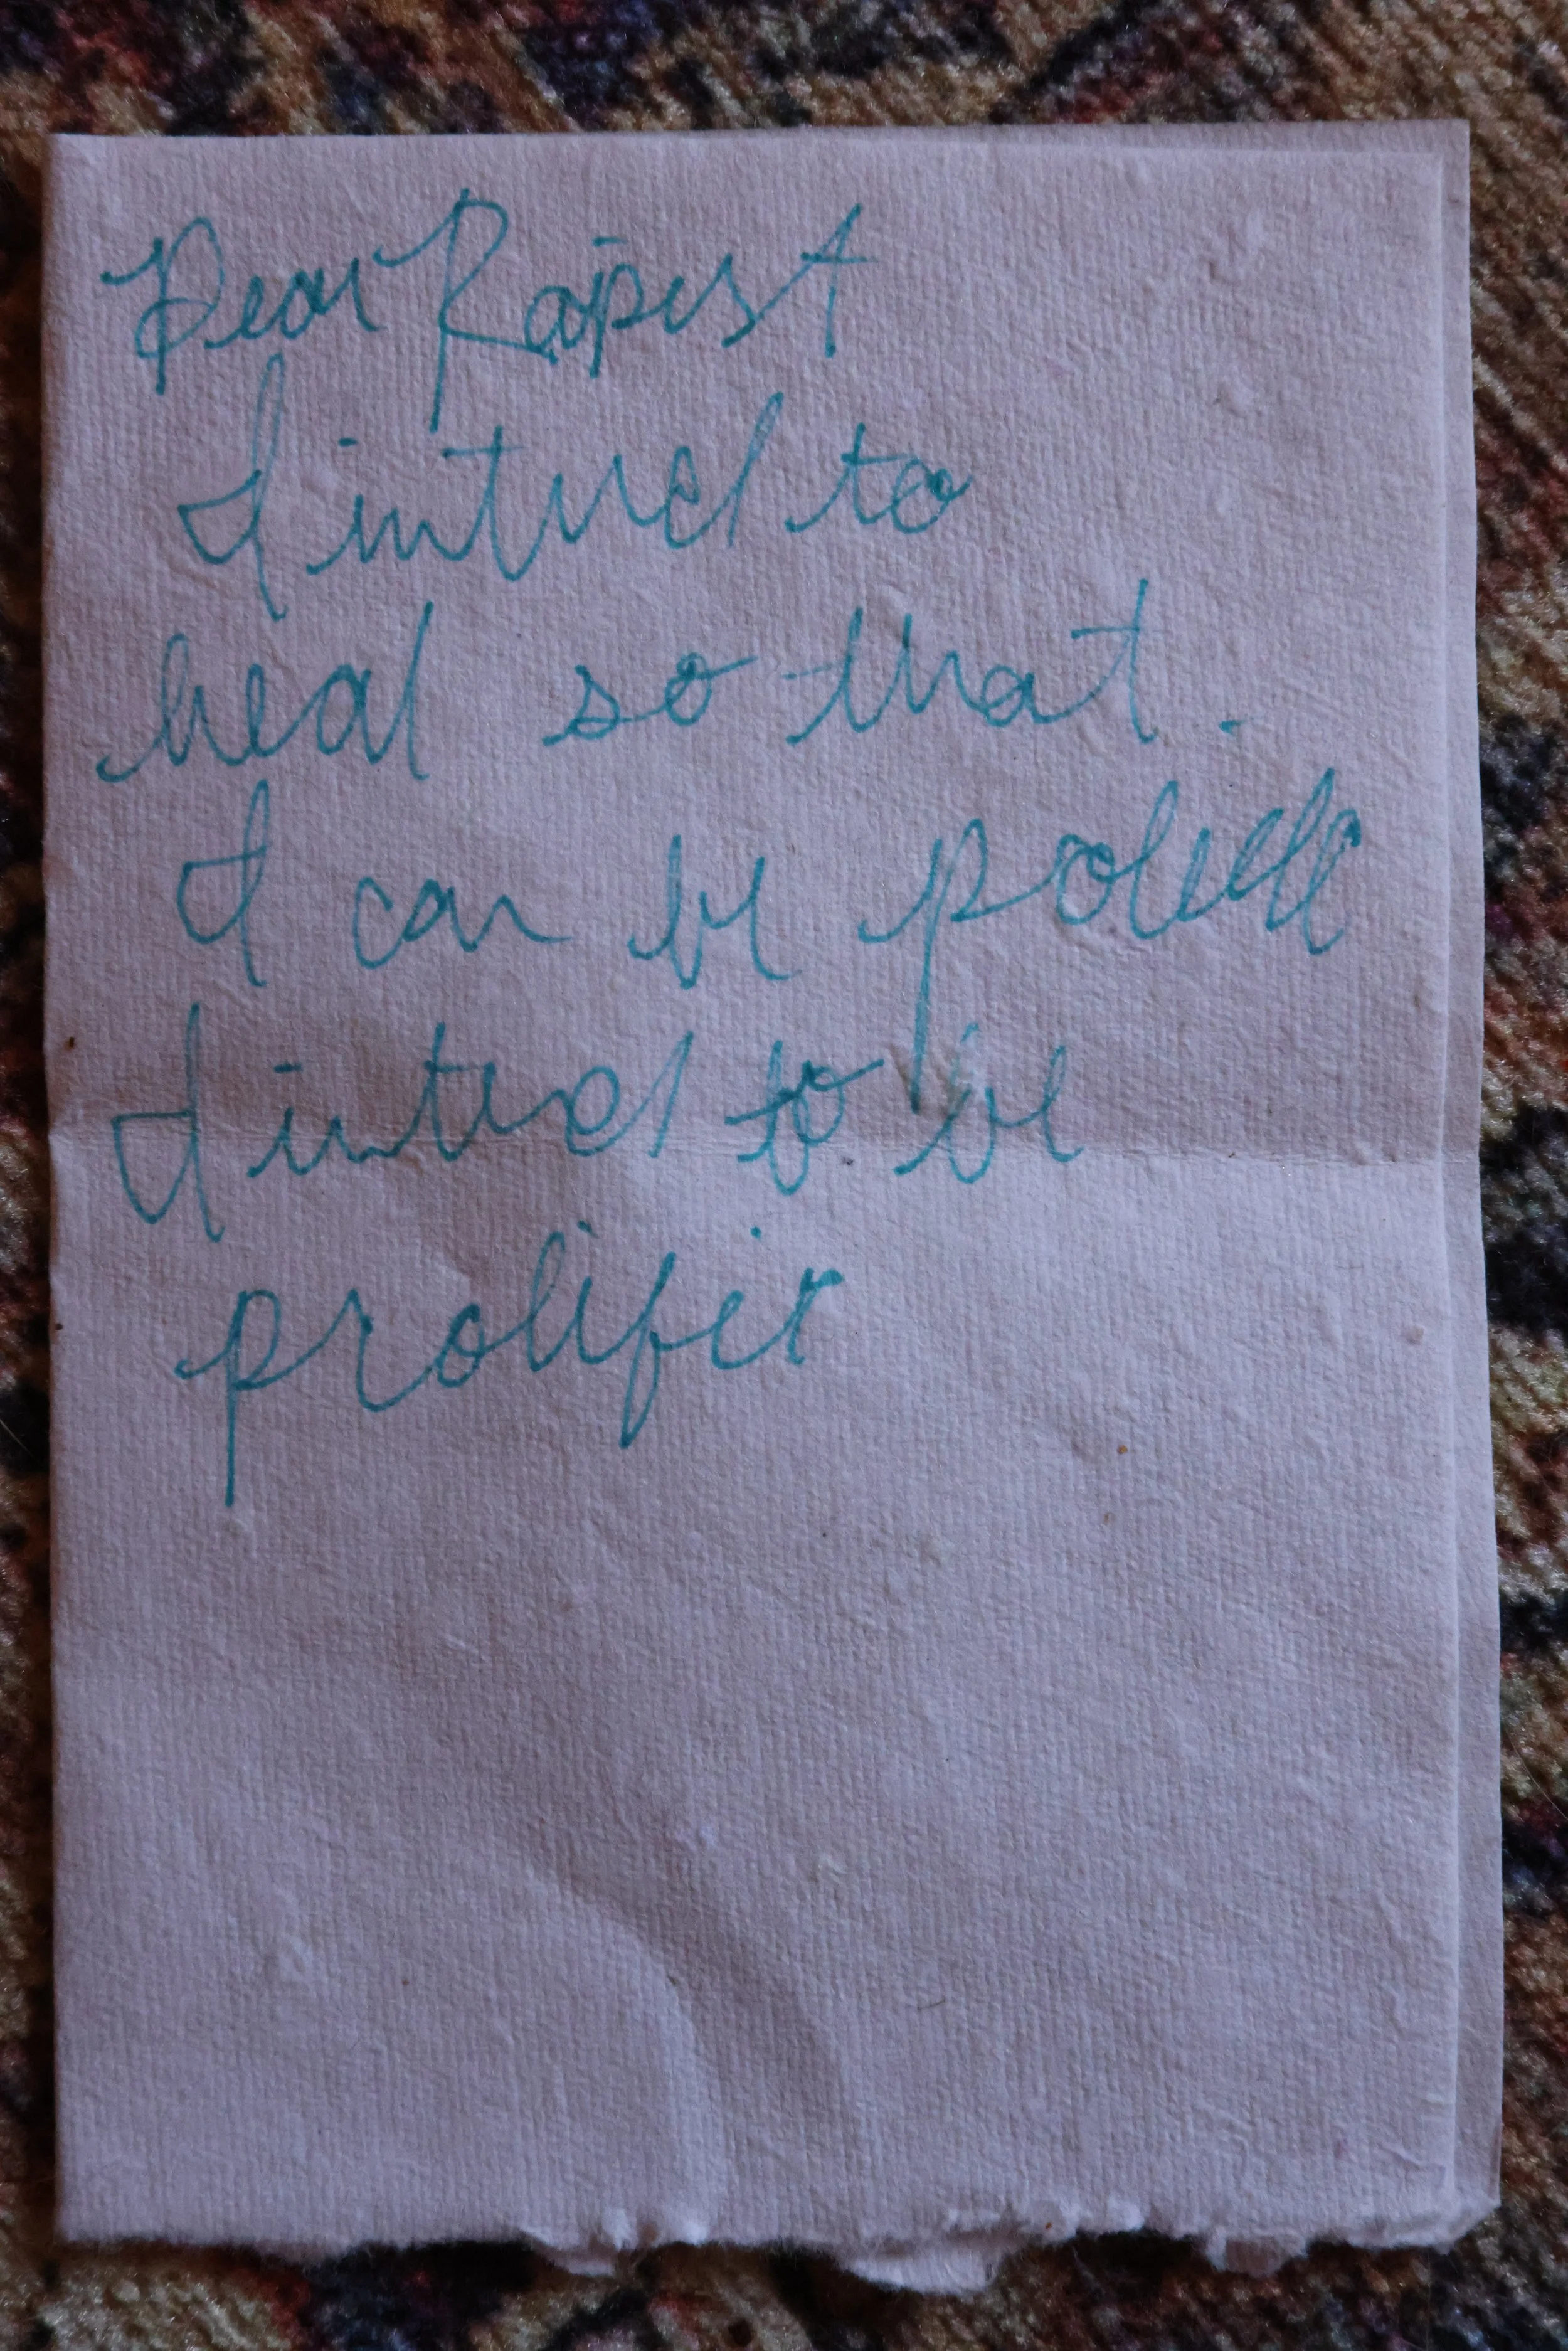 Dear Rapist
I intend to
heal so that.
I can be
I intend to be
prolific